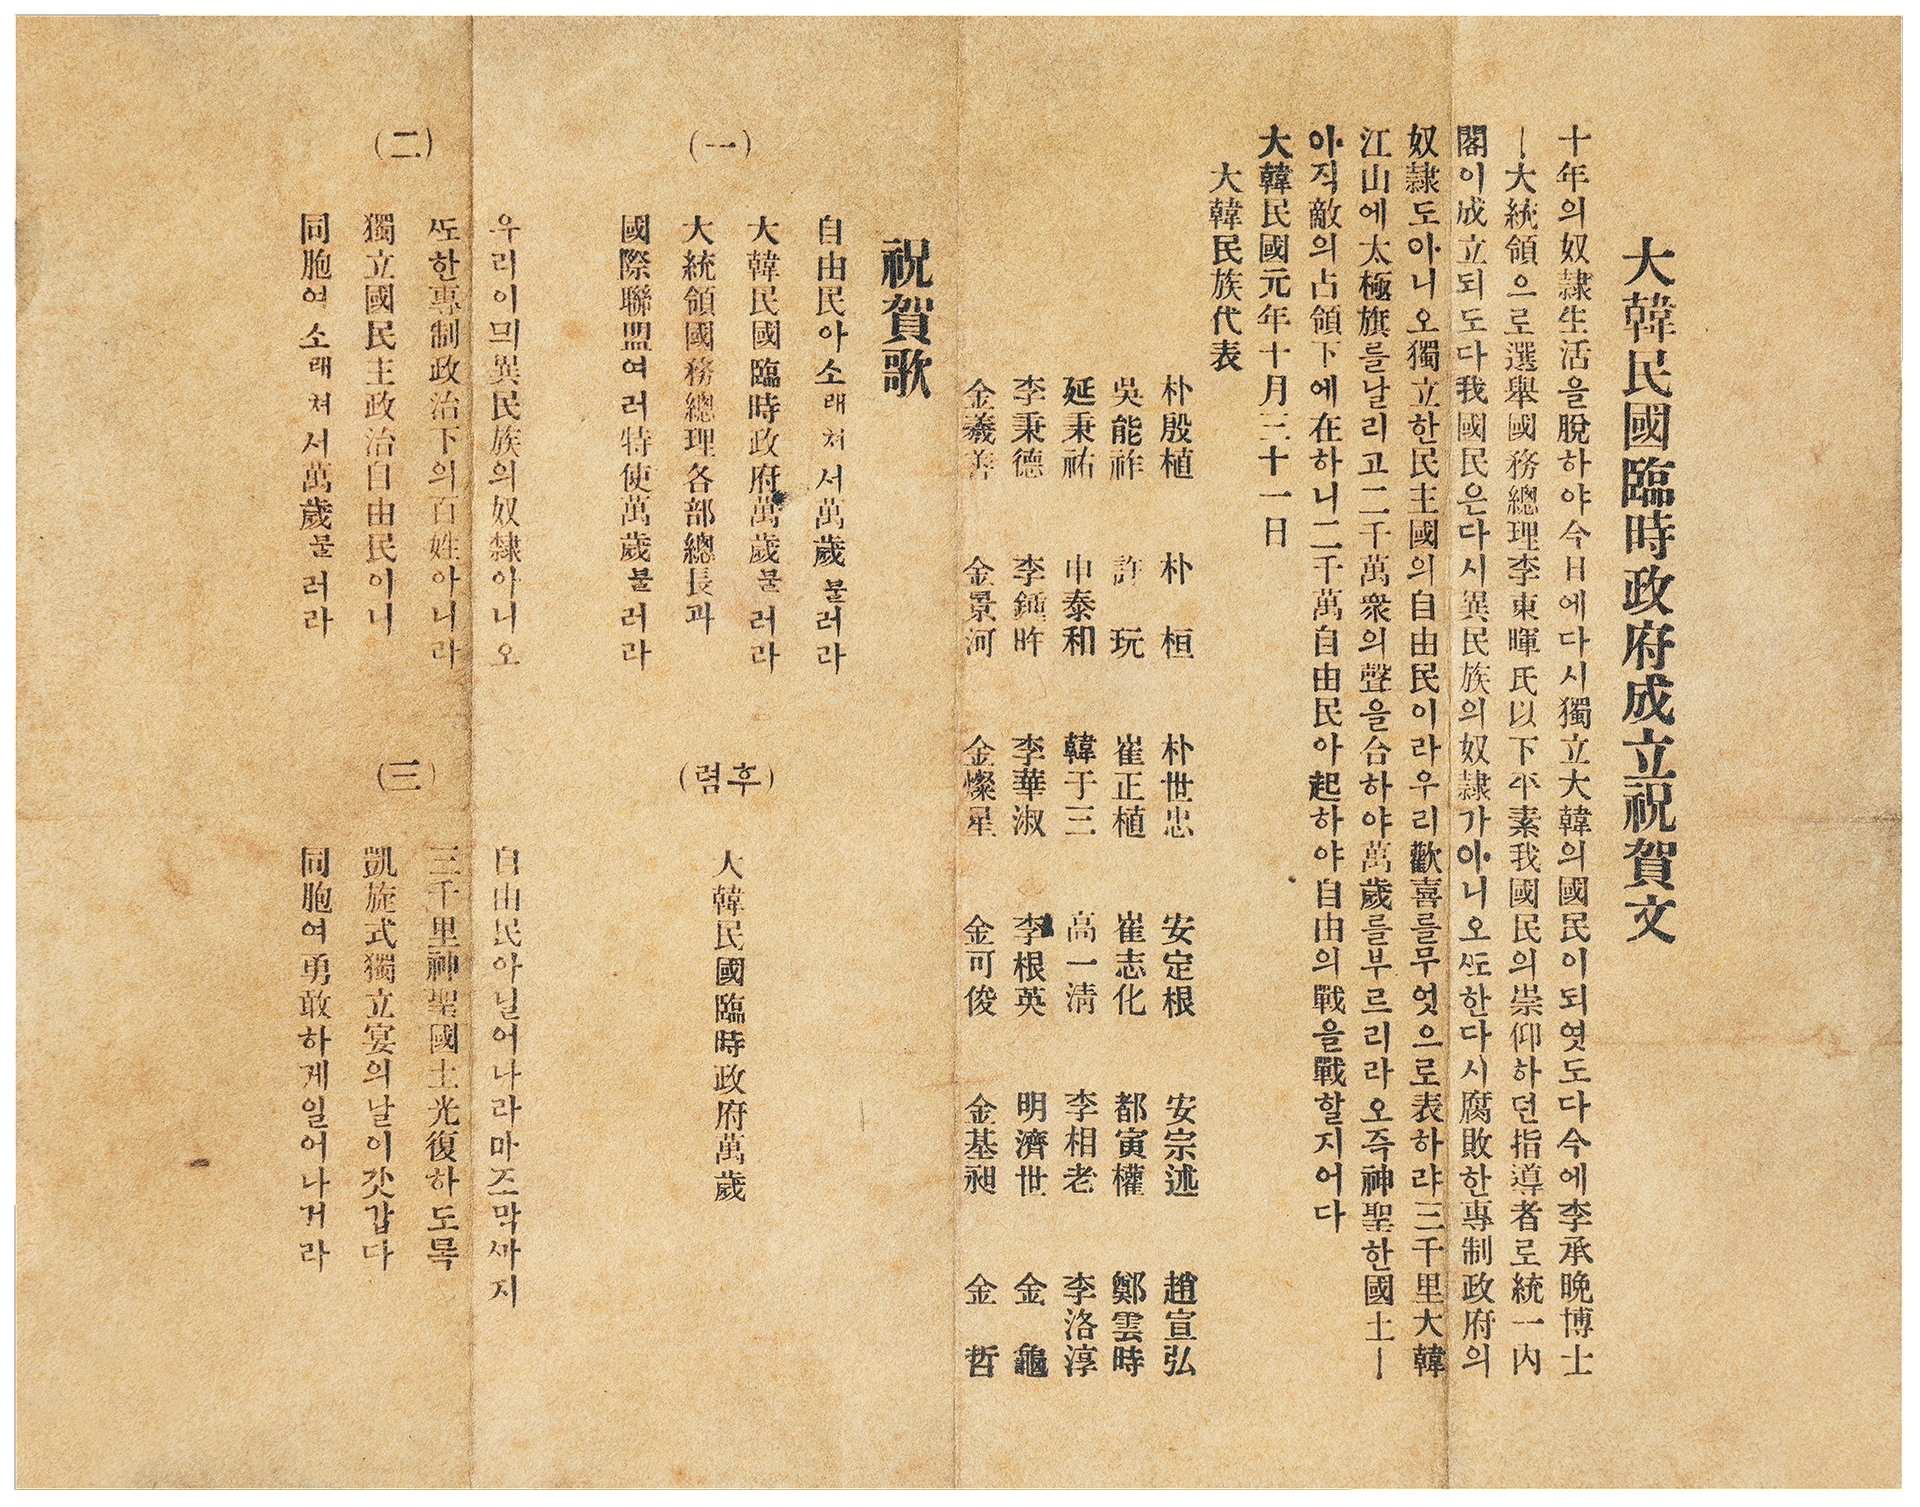 大韓民國臨時政府成立祝賀文
十年의奴隷生活을脫하야今日에다시獨立大韓의國民이되엿도다今에李承晩博士
ㅣ大統領으로選擧國務總理李東暉氏以下平素我國民의崇仰하던指導者로統一內
閣이成立되도다我國民은다시異民族의奴隷가아니오ᄯᅩ한다시腐敗한專制政府의
奴隷도아니오獨立한民主國의自由民이라우리歡喜를무엇으로表하랴三千里大韓
江山에太極旗를날리고二千萬衆의聲을合하야萬歲를부르리라오즉神聖한國土ㅣ
아직敵의占領下에在하니二千萬自由民아起하야自由의戰을戰할지어다
大韓民國元年十月三十一日
大韓民族代表
朴殷植 朴桓 朴世忠 安定根 安宗述 趙宣弘
吳能祚 許玩 崔正植 崔志化 都寅權 鄭雲時
延秉祐 申泰和 韓于三 高一淸 李相老 李洛淳
李秉德 李鍾旿 李華淑 李根英 明濟世 金龜
金羲善 金景河 金燦星 金可俊 金基昶 金哲
祝賀歌
(一)
自由民아소래쳐서萬歲불러라
大韓民國臨時政府萬歲불러라
大統領國務總理各部總長과
國際聯盟여러特使萬歲불러라
(후렴)
大韓民國臨時政府萬歲
(二)
우리이믜異民族의奴隸아니오
ᄯᅩ한專制政治下의百姓아니라
獨立國民主政治自由民이니
同胞여소래쳐서萬歲불러라
(三)
自由民아닐어나라마즈막ᄭᅡ지
三千里神聖國土光復하도록
凱旋式獨立宴의날이갓갑다
同胞여勇敢하게일어나거라